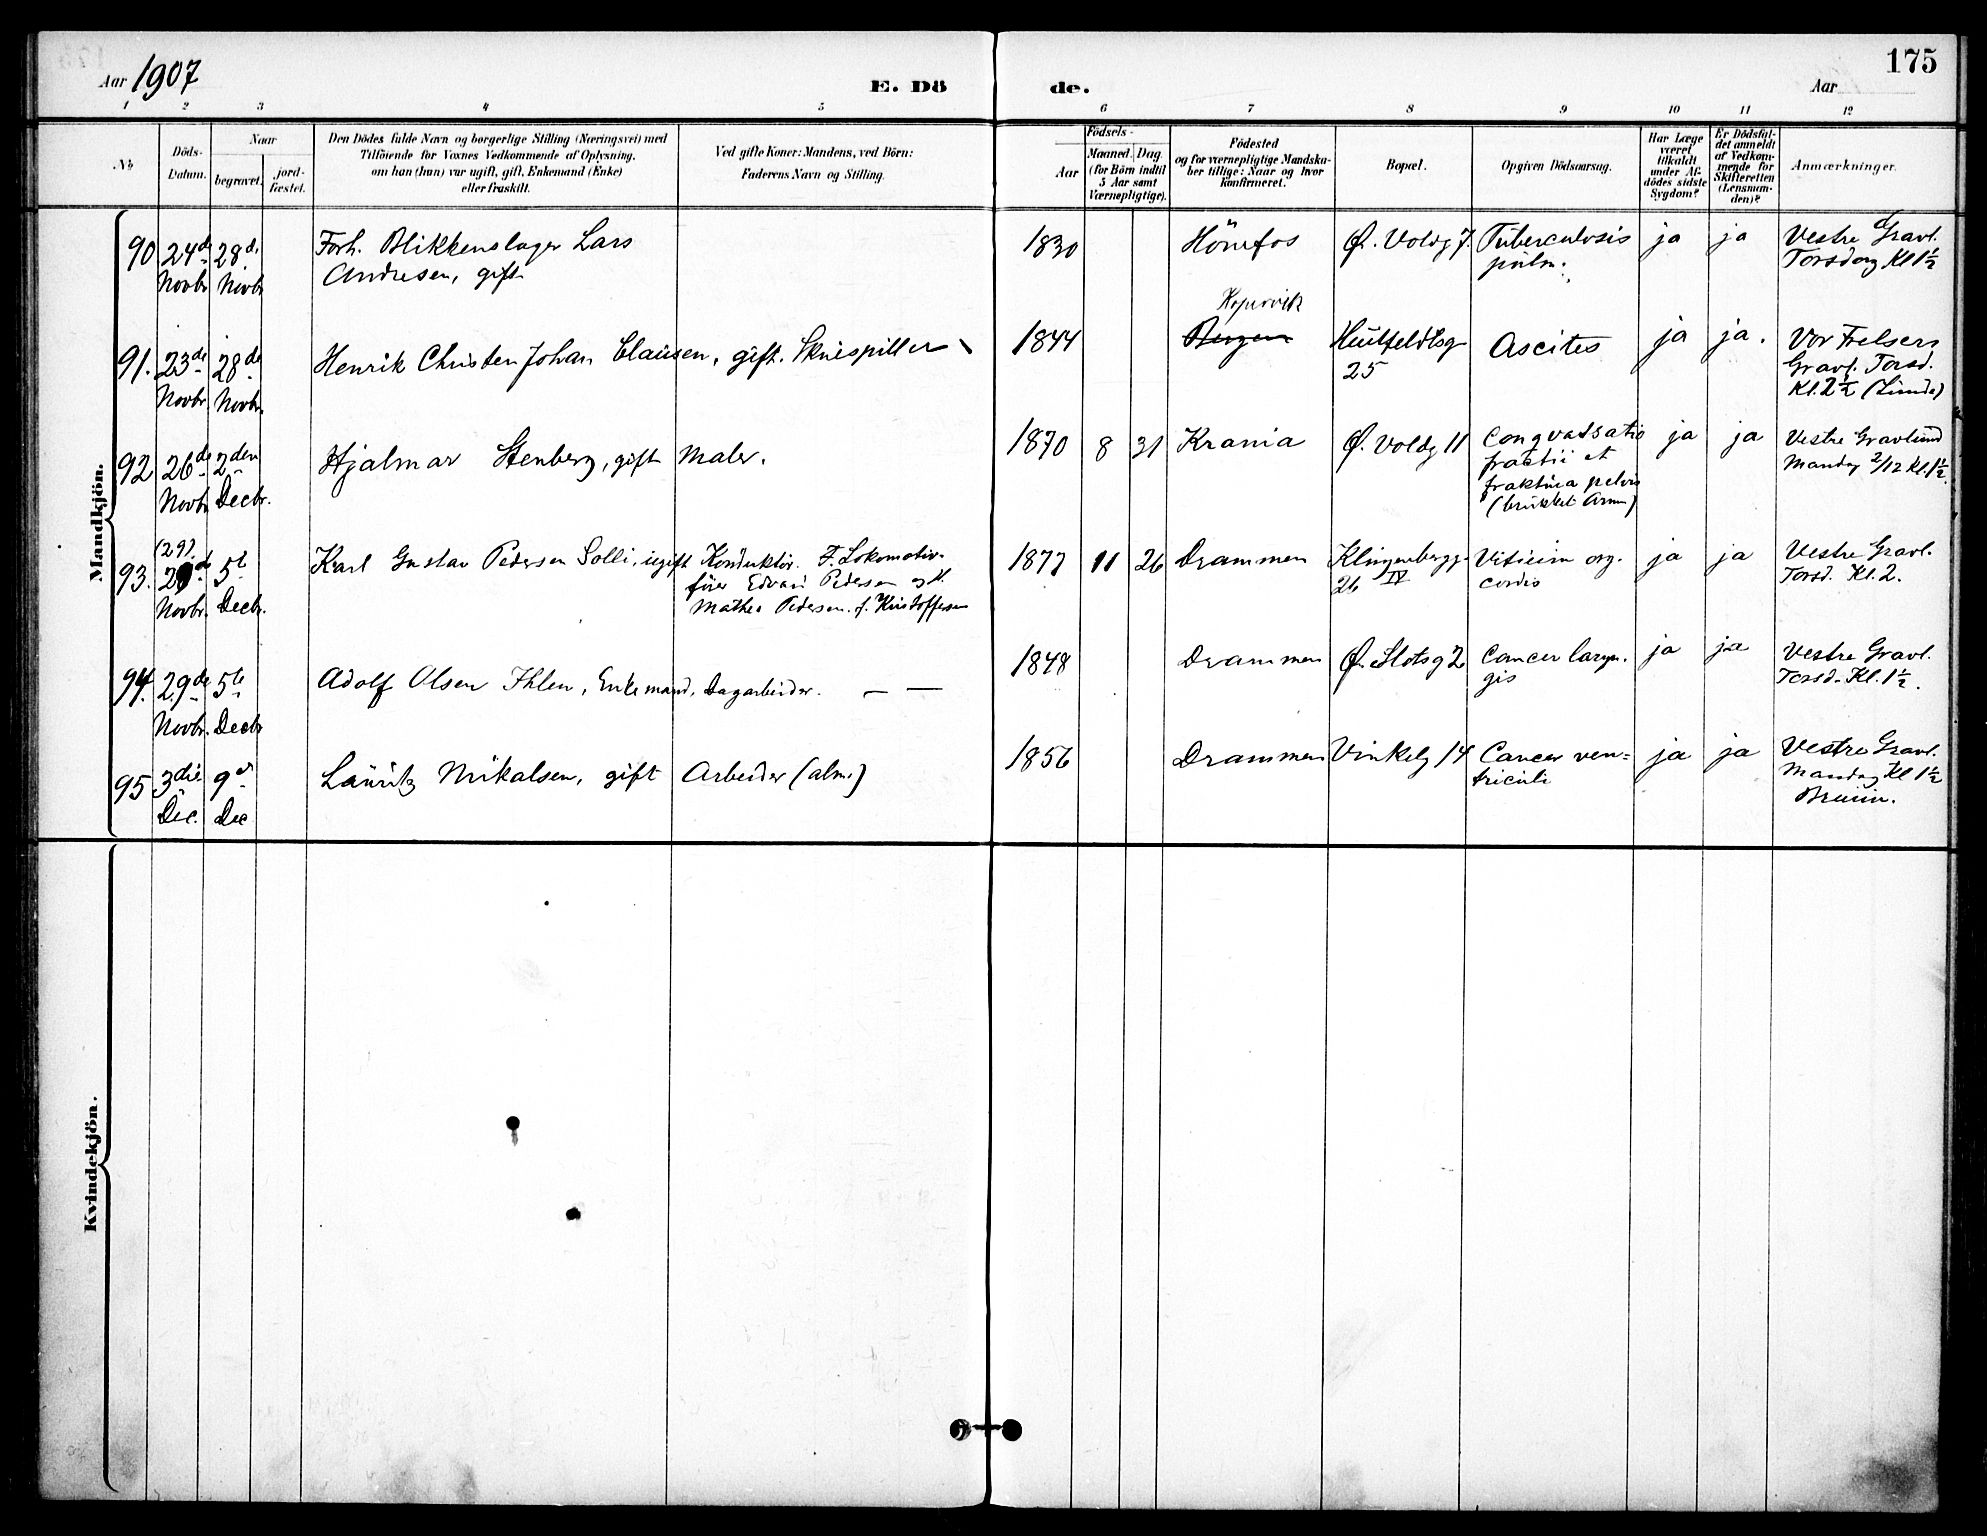 Aar 1907
E. Dö
de.
Aar
175
1 2 3 4 5 6 7 8 9 10 11 12
No
Döds-
Datum.
Naar
begravet.
jord-
fæstet.
Den Dödes fulde Navn og borgerlige Stilling (Næringsvei) med
Tilföiende for Voxnes Vedkommende af Oplysning,
om han (hun) var ugift, gift, Enkemand (Enke)
eller fraskilt.
Ved gifte Koner: Mandens, ved Börn:
Faderens Navn og Stilling.
Födsels-
Aar
Maaned.
Dag
(for Börn indtil
5 Aar samt
Værnepligtige).
Födested
og for værnepligtige Mandska-
ber tillige: Naar og hvor
konfirmeret.
Bopæl.
Opgiven Dödsaarsag.
Har Læge
været
tilkaldt
under Af-
dödes sidste
Sygdom?
Er Dödsfal-
det anmeldt
af Vedkom-
mende for
Skifteretten
(Lensman-
den)?
Anmærkninger.
Mandkjön.
90 24d 28d. Forh. Blikkenslager Lars 1830 Hönefos Ø. Voldg 7 Tuberculosis ja ja Vestre Gravl.
Novbr Novbr Andresen, gift pulm. Torsdag Kl 1½
Kopervik
91. 23de 28de Henrik Christen Johan Clausen, gift. Skuespiller 1844 Bergen Huitfeldtsg Ascites ja ja. Vor Frelsers
Novbr. Novbr. 25 Gravl. Torsd.
Kl. 2½ (Lunde)
92 26de 2den Hjalmar Stenberg, gift Maler. 1870 8 31 Krania Ø. Voldg 11 Conqvassatio ja ja Vestre Gravlund
Novbr. Decbr. Mandag 2/12 Kl. 1½.
fraktura pelvis
(brukket Arm)
(29).
93. 5te Karl Gustav Pedersen Solli, ugift Konduktör. F. Lokomotiv- 1877 11 26 Drammen Klingenbergg. Vitium org. ja ja Vestre Gravl.
Novbr. Decbr. förer Edvard Pedersen og H. 26 IV cordis Torsd. Kl. 2.
Mathea Pedersen. f. Kristoffersen
94. 29de 5te Adolf Olsen Ihlen, Enkemand, Dagarbeider. — — 1848 Drammen Ø. Slotsg 2 Cancer laryn- ja ja Vestre Gravl.
Novbr. Decbr gis Torsd. Kl. 1½.
95 3die 9de Lauritz Mikalsen, gift Arbeider (alm.) 1856 Drammen Vinkelg 14 Cancer ven= ja ja Vestre Gravl.
Dec. Dec triculi Mandag Kl 1½
Bruun.
Kvindekjön.